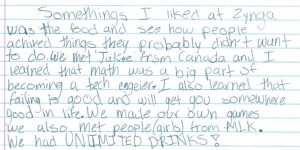 Somethings I liked at Zynga
was the food and see how people
achived things they probably didn't want
to do. We met Jake from Canada and I
learned that math was a big part of
becoming a tech engeier. I also learned that
failing is good and will get you somewhere
good in life. We made our own games
we also met people(girls) from MLK.
We had UNLIMITED DRINKS!